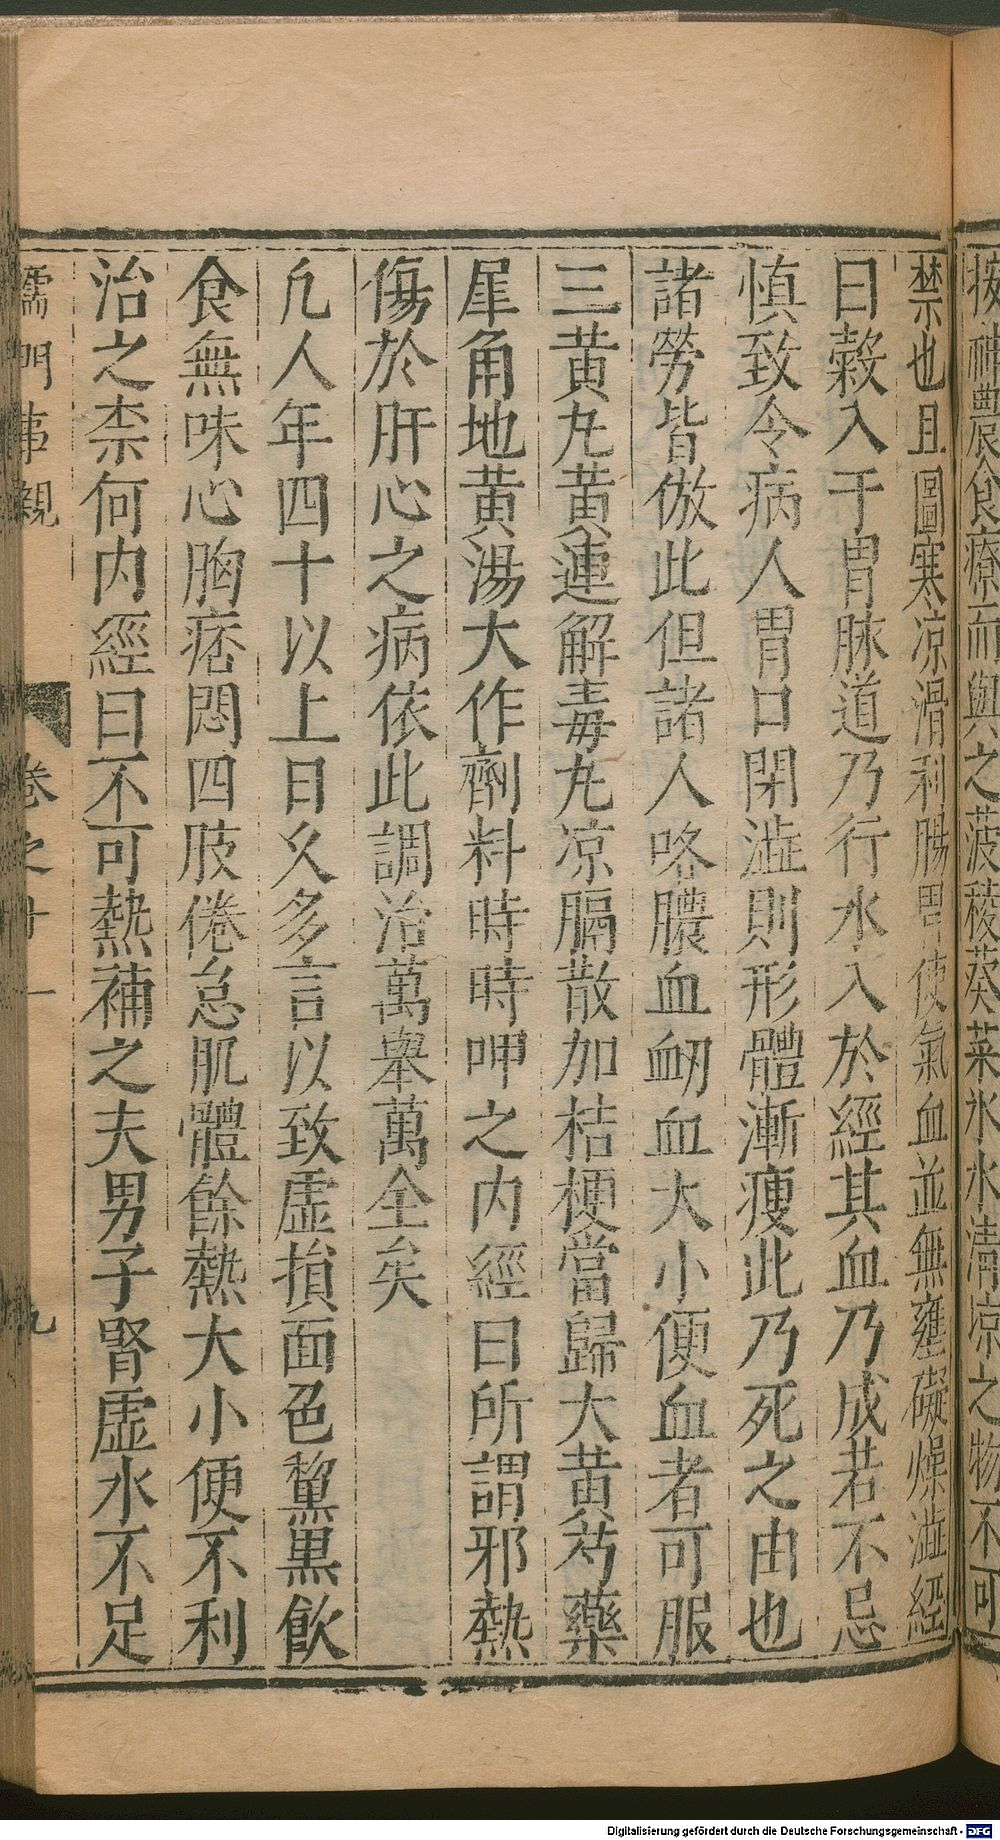 按神農食療而與之菠稜葵菜氷水清凉之物不可
禁也且圖寒凉滑利腸胃使氣血並無壅礙燥澁經
曰穀入于胃脉道乃行水入於經其血乃成若不忌
慎致令病人胃口閉澁則形體漸瘦此乃死之由也
諸勞皆倣此但諸人咯膿血衂血大小便血者可服
三黃丸黃連解毒丸凉膈散加桔梗當歸大黃芍藥
犀角地黃湯大作劑料時時呷之内經曰所謂邪熱
傷於肝心之病依此調治萬舉萬全矣
凢人年四十以上日久多言以致虛損面色黧黑飲
食無味心胸痞悶四肢倦怠肌體餘熱大小便不利
治之柰何内經曰不可熱補之夫男子腎虛水不足
儒門事親 卷之十一 九
Digitalisierung gefördert durch die Deutsche Forschungsgemeinschaft - DFG